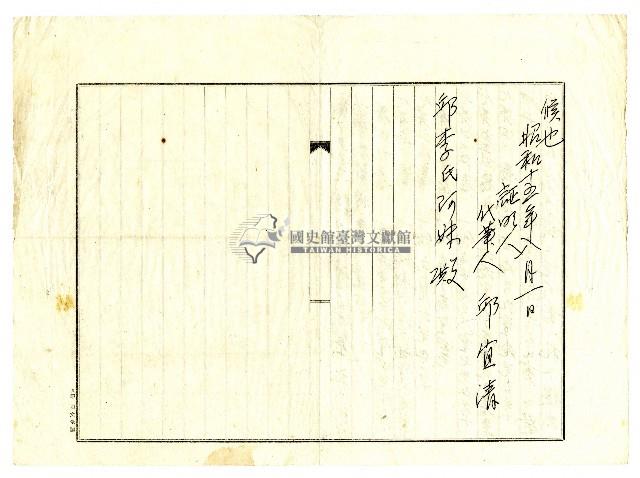 候也
昭和十五年八月一日
証明人
代筆人 邱宜清
邱李氏阿妹殿
國史館臺灣文獻館
TAIWAN HISTORICA